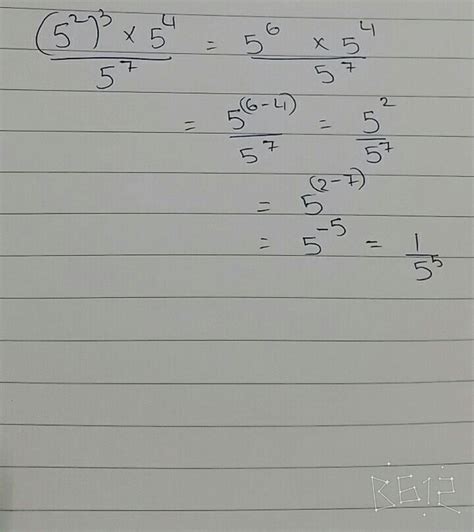 (5²)³ × 5⁴ / 5⁷ = 5⁶ × 5⁴ / 5⁷
= 5⁽⁶⁻⁴⁾ / 5⁷ = 5² / 5⁷
= 5⁽²⁻⁷⁾
= 5⁻⁵ = 1 / 5⁵
B612